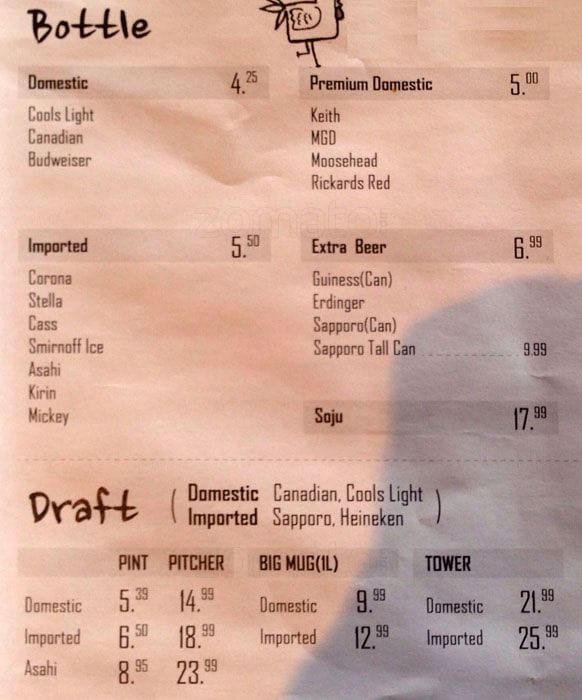 Bottle
Domestic 4.25
Cools Light
Canadian
Budweiser
Premium Domestic 5.00
Keith
MGD
Moosehead
Rickards Red
zomato
Imported 5.50
Corona
Stella
Cass
Smirnoff Ice
Asahi
Kirin
Mickey
Extra Beer 6.99
Guiness(Can)
Erdinger
Sapporo(Can)
Sapporo Tall Can 9.99
Soju 17.99
Draft ( Domestic Canadian, Cools Light
Imported Sapporo, Heineken )
PINT PITCHER
Domestic 5.39 14.99
Imported 6.50 18.99
Asahi 8.95 23.99
BIG MUG(1L)
Domestic 9.99
Imported 12.99
TOWER
Domestic 21.99
Imported 25.99